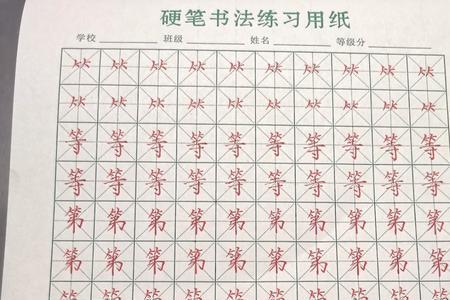 硬笔书法练习用纸
学校 班级 姓名 等级分
⺮ ⺮ ⺮ ⺮ ⺮ ⺮ ⺮ ⺮ ⺮ ⺮
⺮ ⺮ ⺮ ⺮ ⺮ ⺮ ⺮ ⺮ ⺮ ⺮
等 等 等 等 等 等 等 等 等 等
等 等 等 等 等 等 等 等 等 等
第 第 第 第 第 第 第 第 第 第
第 第 第 第 第 第 第 第 第 第